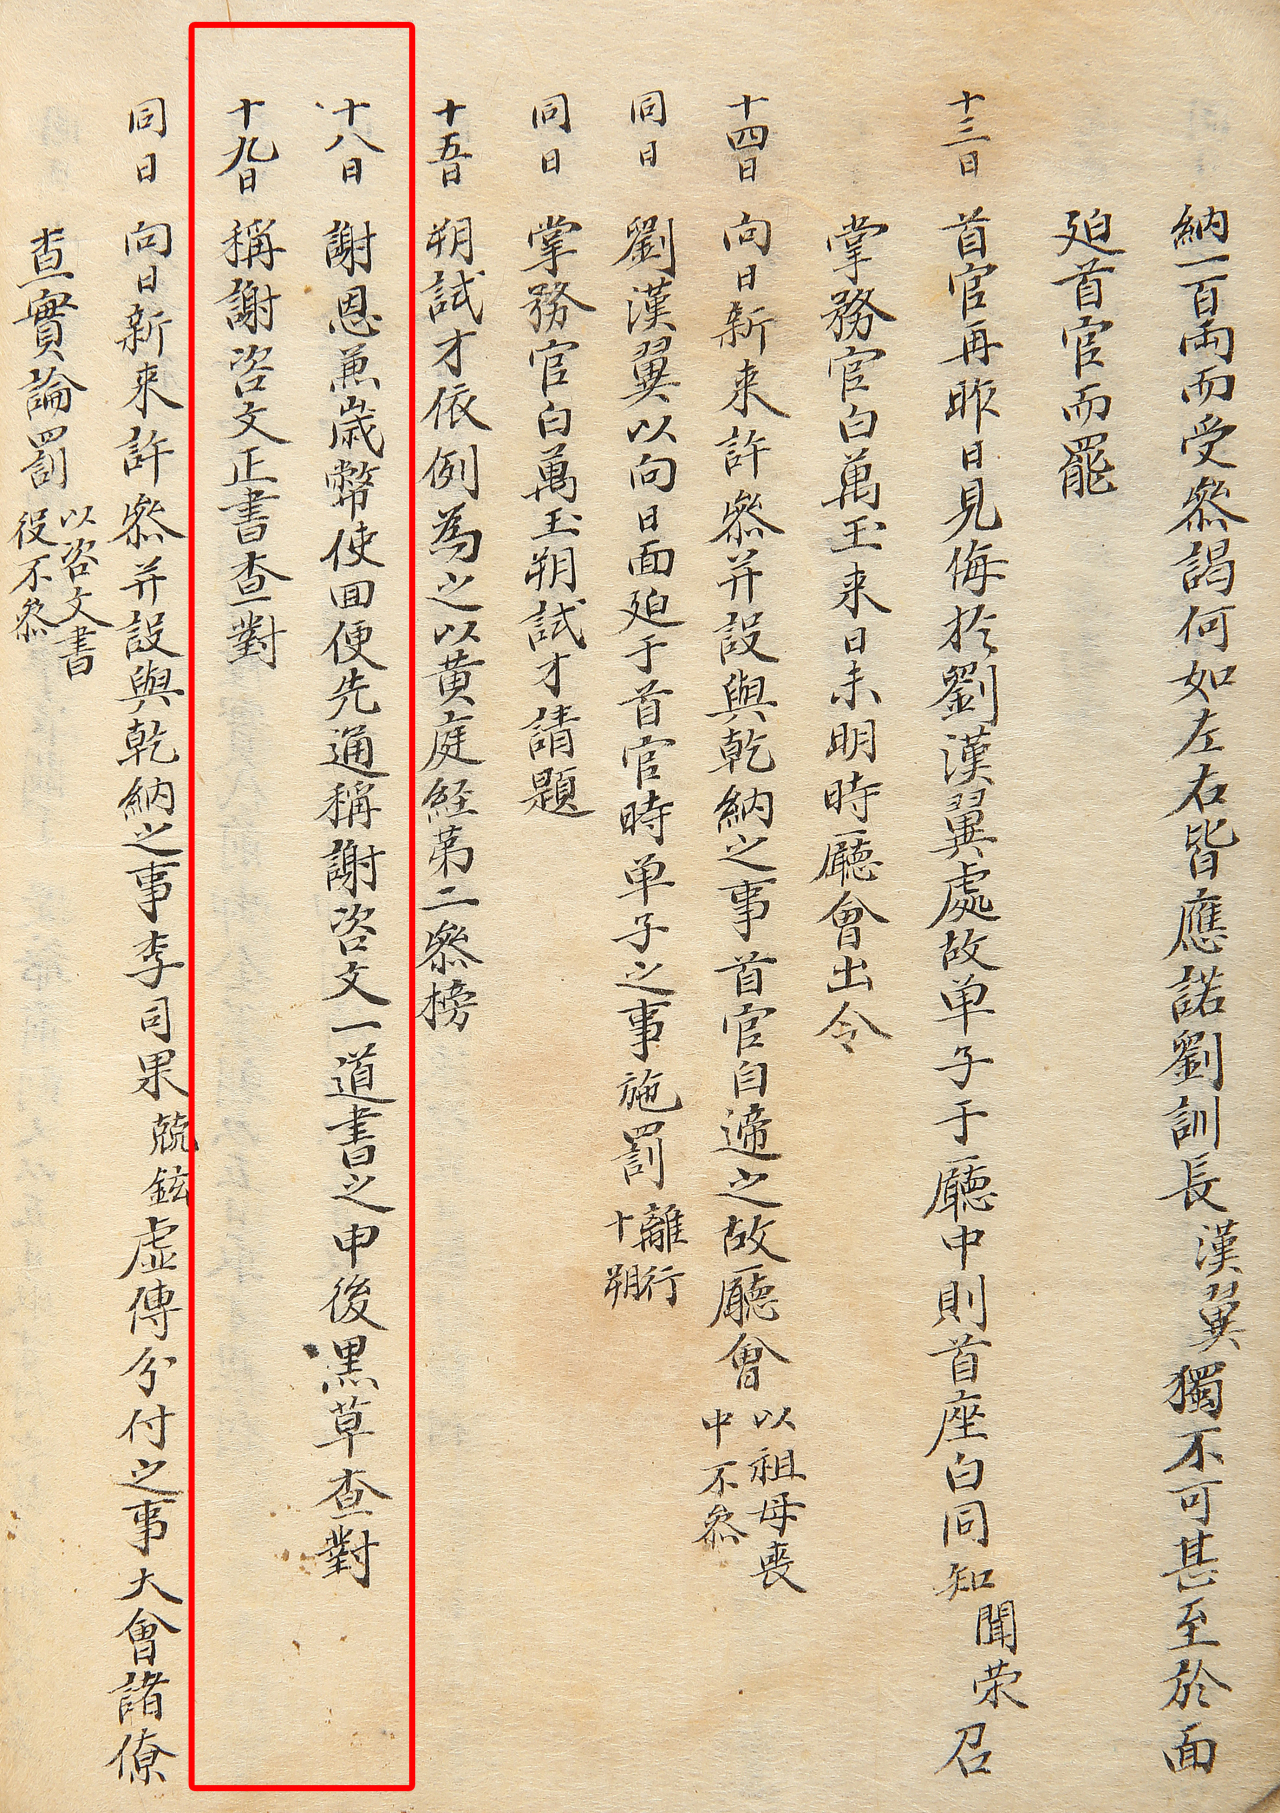 納一百両而受叅謁何如左右皆應諾劉訓長漢翼獨不可甚至於面
廹首官而罷
十三日 首官再昨日見侮於劉漢翼處故单子于廳中則首座白同知聞荣召
掌務官白萬玉来日未明時廳會出令
十四日 向日新来許叅并設與乾納之事首官自遆之故廳會以祖母喪中不叅
同日 劉漢翼以向日面廹于首官時单子之事施罰離行十朔
同日 掌務官白萬玉朔試才請題
十五日 朔試才依例為之以黄庭経第二叅榜
十八日 謝恩兼歳幣使回便先通稱謝咨文一道書之申後黒草查對
十九日 稱謝咨文正書查對
同日 向日新来許叅并設與乾納之事李司果兢鉉虛傳分付之事大會諸僚
查實論罰以咨文書役不叅